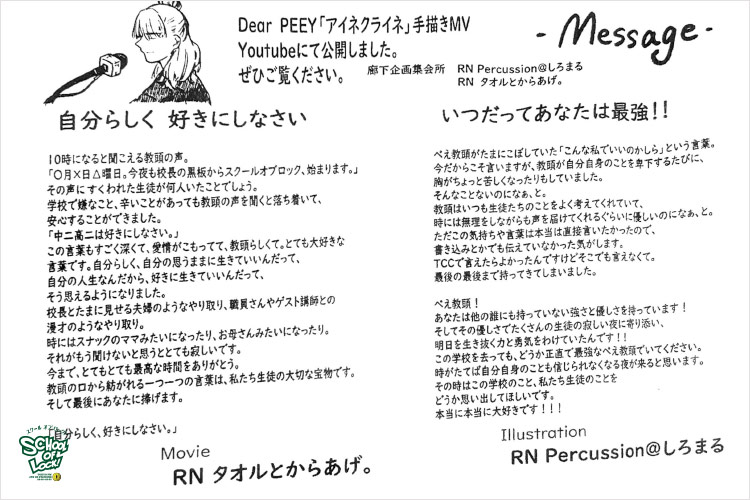 Dear PEEY「アイネクライネ」手描きMV
Youtubeにて公開しました。
ぜひご覧ください。
廊下企画集会所 RN Percussion@しろまる
RN タオルとからあげ。
- Message -
自分らしく 好きにしなさい
10時になると聞こえる教頭の声。
「〇月×日△曜日。今夜も校長の黒板からスクールオブロック、始まります。」
その声にすくわれた生徒が何人いたことでしょう。
学校で嫌なこと、辛いことがあっても教頭の声を聞くと落ち着いて、
安心することができました。
「中二高二は好きにしなさい。」
この言葉もすごく深くて、愛情がこもってて、教頭らしくて。とても大好きな
言葉です。自分らしく、自分の思うままに生きていいんだって、
自分の人生なんだから、好きに生きていいんだって、
そう思えるようになりました。
校長とたまに見せる夫婦のようなやり取り、職員さんやゲスト講師との
漫才のようなやり取り。
時にはスナックのママみたいになったり、お母さんみたいになったり。
それがもう聞けないと思うととても寂しいです。
今まで、とてもとても最高な時間をありがとう。
教頭の口から紡がれる一つ一つの言葉は、私たち生徒の大切な宝物です。
そして最後にあなたに捧げます。
「自分らしく、好きにしなさい。」
Movie
RN タオルとからあげ。
スクール オブ ロック
SCHOOL
OF
LOCK!
いつだってあなたは最強!!
ぺえ教頭がたまにこぼしていた「こんな私でいいのかしら」という言葉。
今だからこそ言いますが、教頭が自分自身のことを卑下するたびに、
胸がちょっと苦しくなったりもしていました。
そんなことないのになぁ、と。
教頭はいつも生徒たちのことをよく考えてくれていて、
時には無理をしながらも声を届けてくれるぐらいに優しいのになぁ、と。
ただこの気持ちや言葉は本当は直接言いたかったので、
書き込みとかでも伝えていなかった気がします。
TCCで言えたらよかったんですけどそこでも言えなくて。
最後の最後まで持ってきてしまいました。
ぺえ教頭!
あなたは他の誰にも持っていない強さと優しさを持っています!
そしてその優しさでたくさんの生徒の寂しい夜に寄り添い、
明日を生き抜く力と勇気をわけていたんです!!
この学校を去っても、どうか正直で最強なぺえ教頭でいてください。
時がたてば自分自身のことも信じられなくなる夜が来ると思います。
その時はこの学校のこと、私たち生徒のことを
どうか思い出してほしいです。
本当に本当に大好きです!!!
Illustration
RN Percussion@しろまる